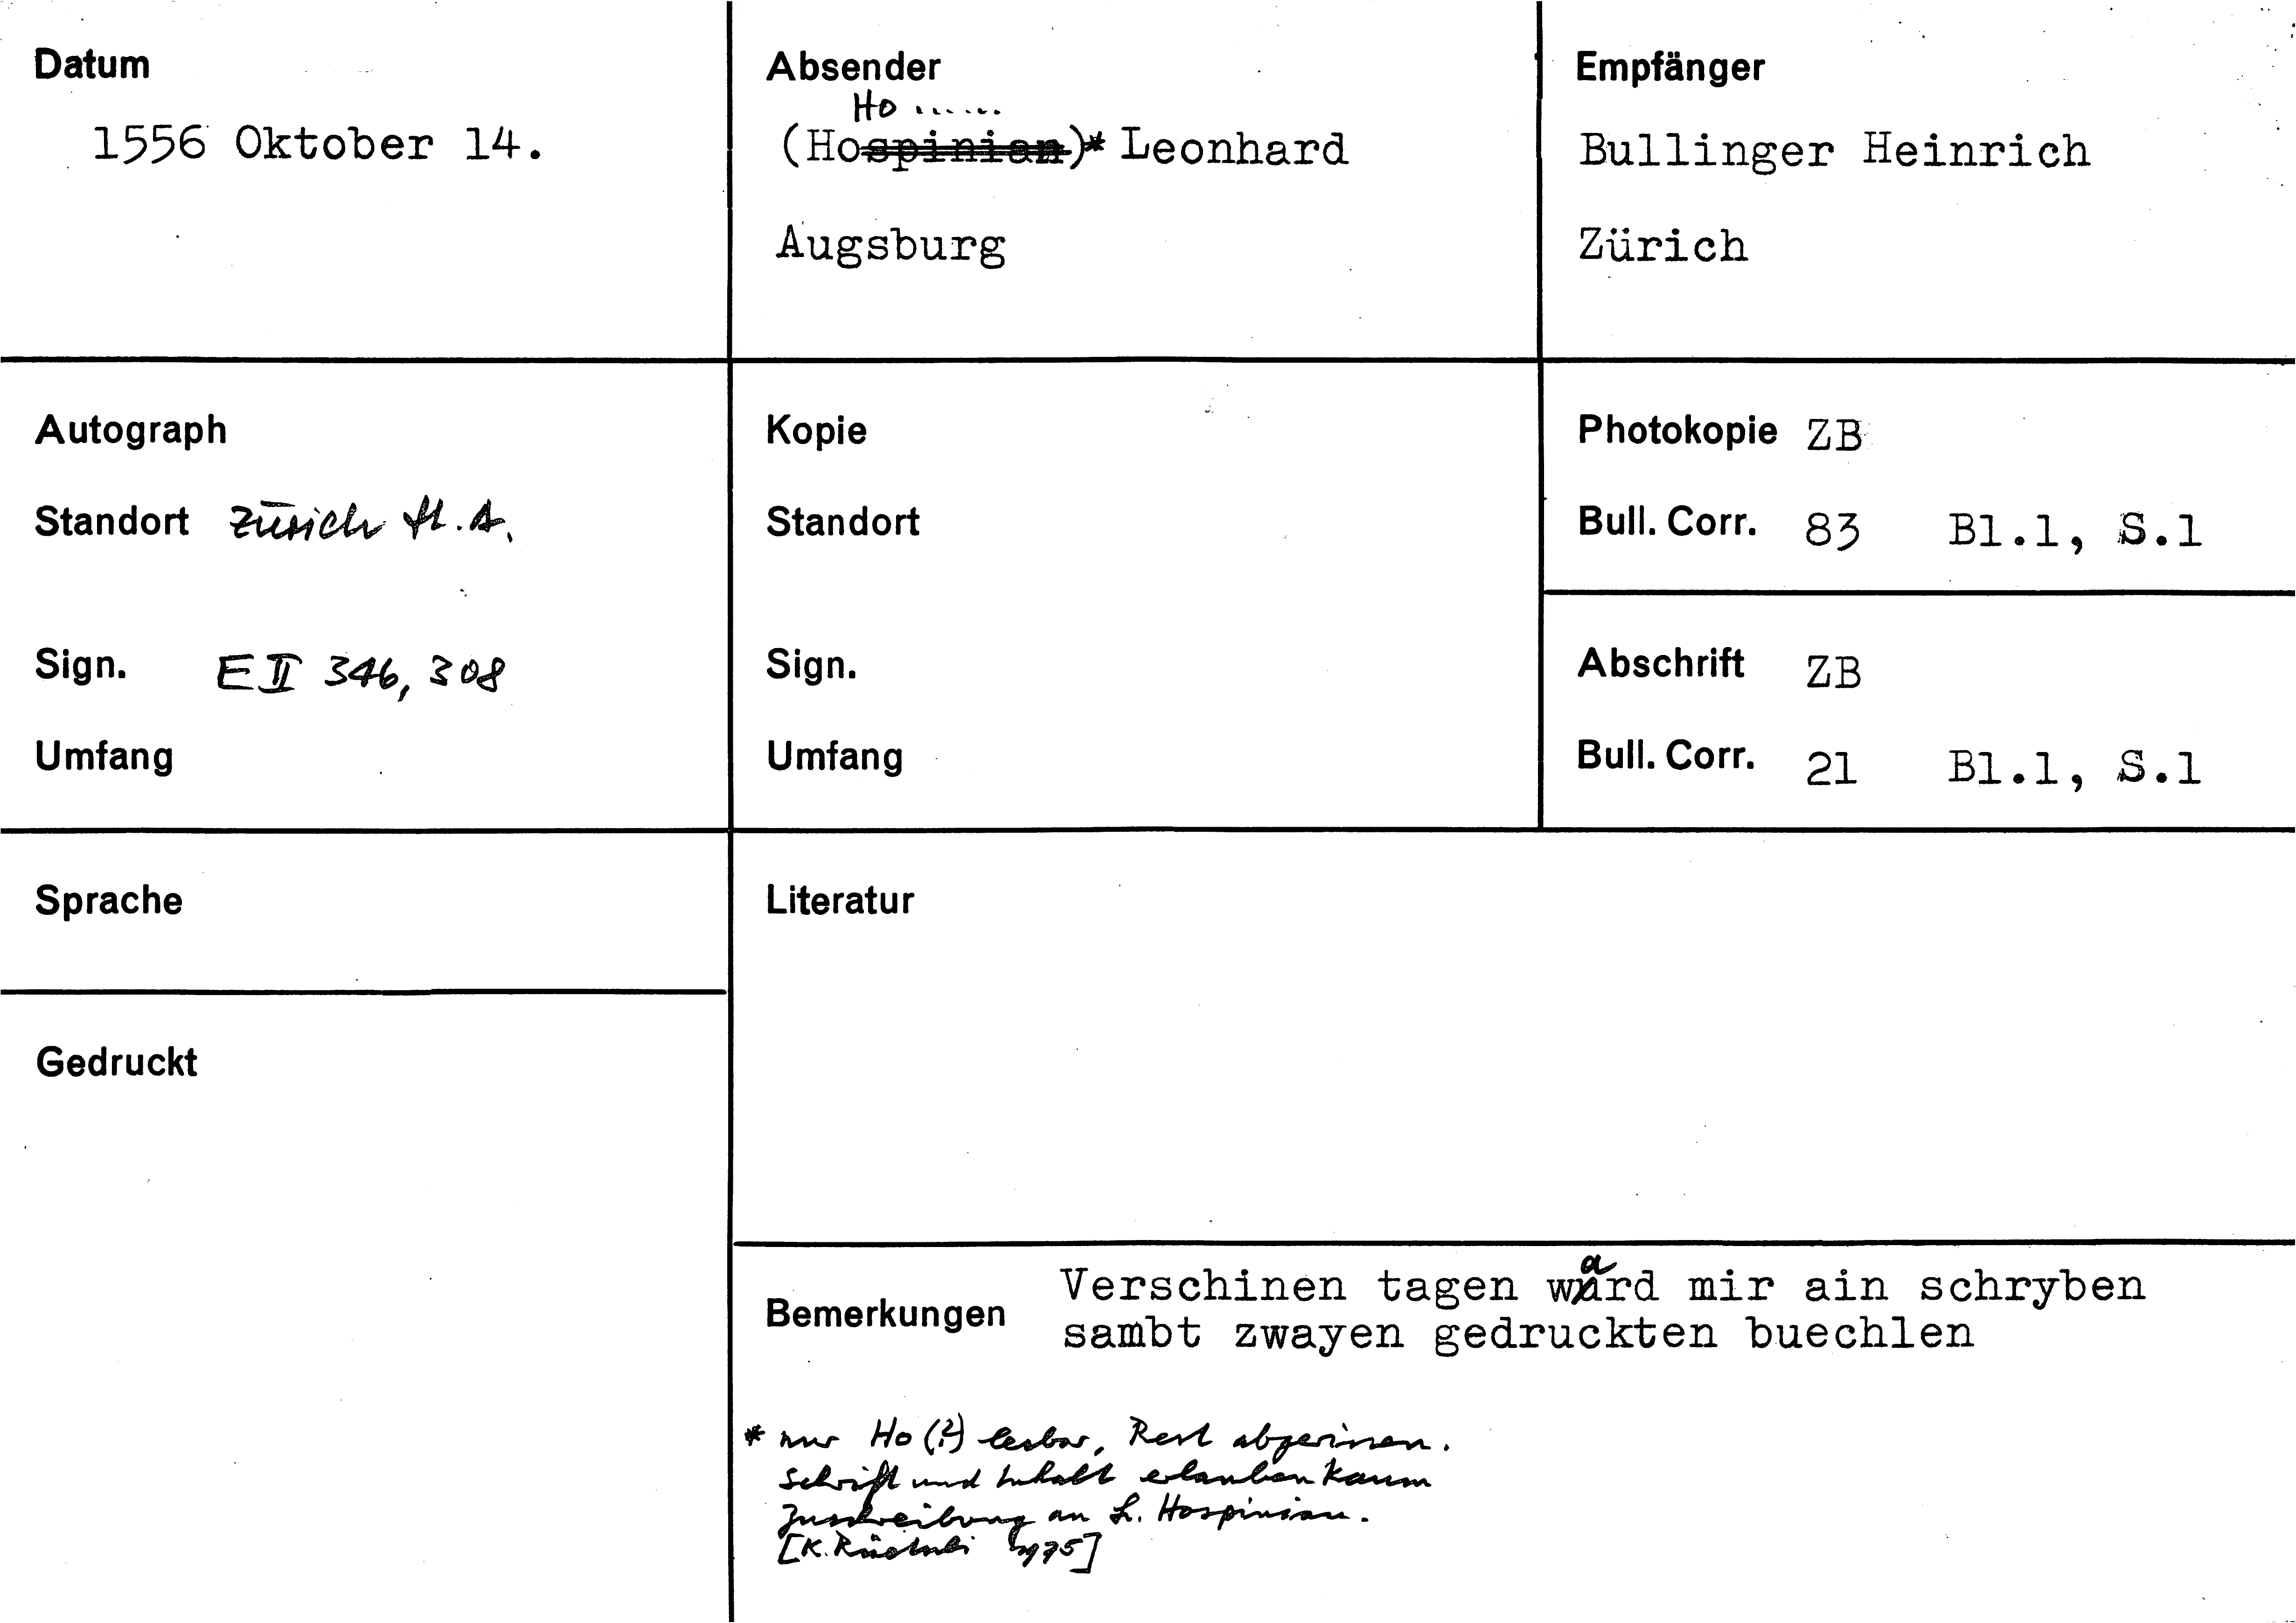 Datum
1556 Oktober 14.
Absender
Ho ......
(Hospinian)* Leonhard
Augsburg
Empfänger
Bullinger Heinrich
Zürich
Autograph
Standort Zürich St.A.
Sign. E II 346, 308
Umfang
Kopie
Standort
Sign.
Umfang
Photokopie ZB
Bull. Corr. 83 Bl.1, S.1
Abschrift ZB
Bull. Corr. 21 Bl.1, S.1
Sprache
Gedruckt
Literatur
Bemerkungen
Verschinen tagen ward mir ain schryben
sambt zwayen gedruckten buechlen
* nur Ho (?) lesbar, Rest abgerissen.
Schrift und Inhalt erlauben kaum
Zuschreibung an L. Hospinian.
[K. Rüetschi 1975]